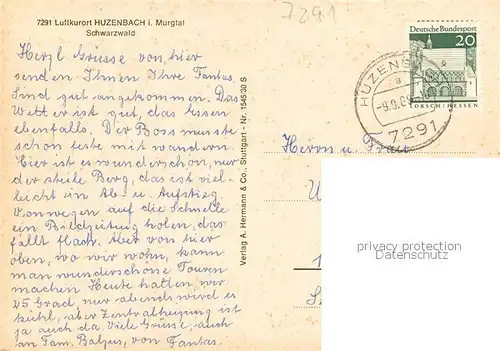 7291
7291 Luftkurort HUZENBACH i. Murgtal
Schwarzwald
Herzl Grüsse von, hier
senden Ihnen Ihre Fantas.
Sind gut angekommen. Das
Wetter ist gut, das Essen
ebenfalls. Der Boss musste
schon feste mit wandern.
Hier ist es wunderschön, nur
der steile Berg, das ist viel-
leicht ein Ab- u. Aufstieg
Von wegen auf die Schnelle
ein Bildzeitung holen, das
fällt flach. Aber von hier
oben, wo wir wohn, kann
man wunderschöne Touren
machen Heute hatten, wir
25 Grad, nur abends wird es
kühl, aber Zentralheizung ist
ja auch da Viele Grüsse, auch
an Fam. Balzus, von Fantas.
Verlag A. Hermann & Co., Stuttgart - Nr. 1545/30 S
Deutsche Bundespost
20
LORSCH/HESSEN
7291
Herrn u. Frau
privacy protection
Datenschutz